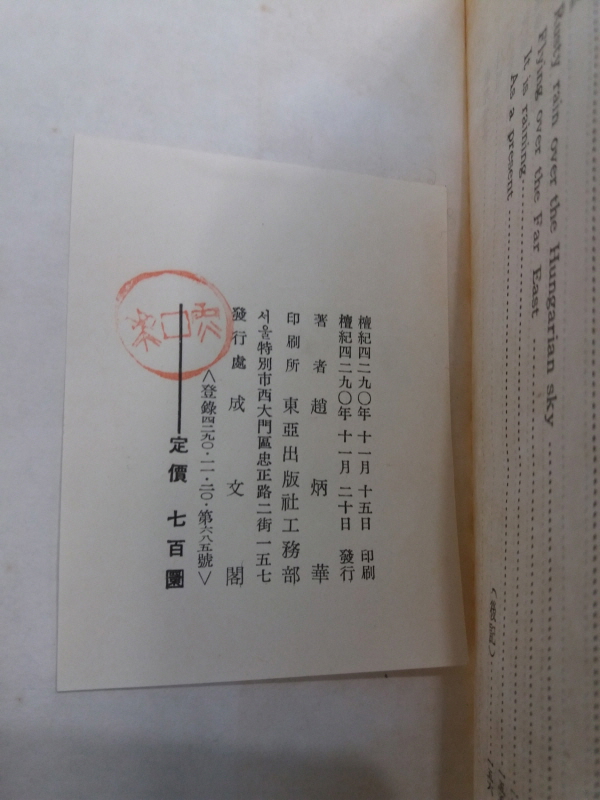 檀紀四二九〇年 十一月 十五日 印刷
檀紀四二九〇年 十一月 二十日 發行
著者 趙炳華
印刷所 東亞出版社工務部
서울特別市西大門區忠正路二街一五七
發行處 成文閣
<登錄四二九〇·一一·二〇·第六八五號>
定價 七百圜
Rusty rain over the Hungarian sky
Flying over the Far East
It is raining
As a present